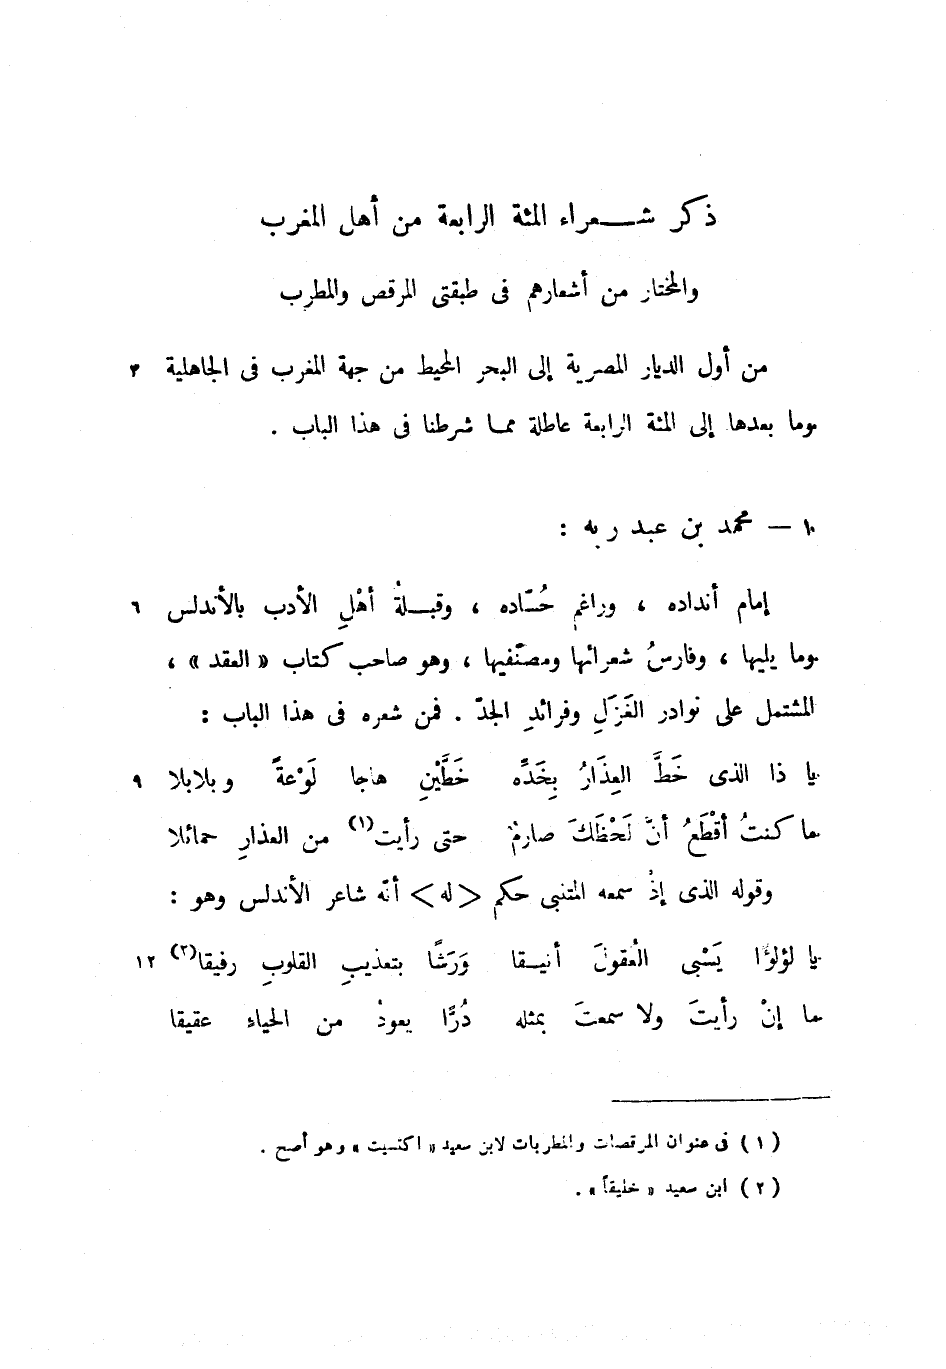 ذكر شـــعراء المئة الرابعة من أهل المغرب
والمختار من أشعارهم فى طبقتى المرقص والمطرب
من أول الديار المصرية إلى البحر المحيط من جهة المغرب فى الجاهلية ٣
وما بعدها إلى المئة الرابعة عاطلة ممـا شرطنا فى هذا الباب .
١٠ — محمد بن عبد ربه :
إمام أنداده ، وراغم حُسّاده ، وقبـلةُ أهْلِ الأدب بالأندلس ٦
وما يليها ، وفارسُ شعرائها ومصنّفيها ، وهو صاحب كتاب « العقد » ،
المشتمل على نوادر الغَزَلِ وفرائدِ الجدّ . فمن شعره فى هذا الباب :
يا ذا الذى خَطَّ العِذَارُ بِخَدِّه خَطَّيْنِ هاجا لَوْعةً وبلابلا ٩
ما كنتُ أقْطَعُ أنَّ لَحْظَكَ صارمٌ حتى رأيت(١) من العذارِ حمائلا
وقوله الذى إذْ سمعه المتنبى حكم <له> أنّه شاعر الأندلس وهو :
يا لؤلؤًا يَسْبى العُقولَ أنيـقا وَرَشًا بتعذيبِ القلوبِ رفيقا(٢) ١٢
ما إنْ رأيتَ ولا سمعتَ بمثله دُرًّا يعودُ من الحياءِ عقيقا
(١) فى عنوان المرقصات والمطربات لابن سعيد « اكتسيت » وهو أصح .
(٢) ابن سعيد « خليقاً » .